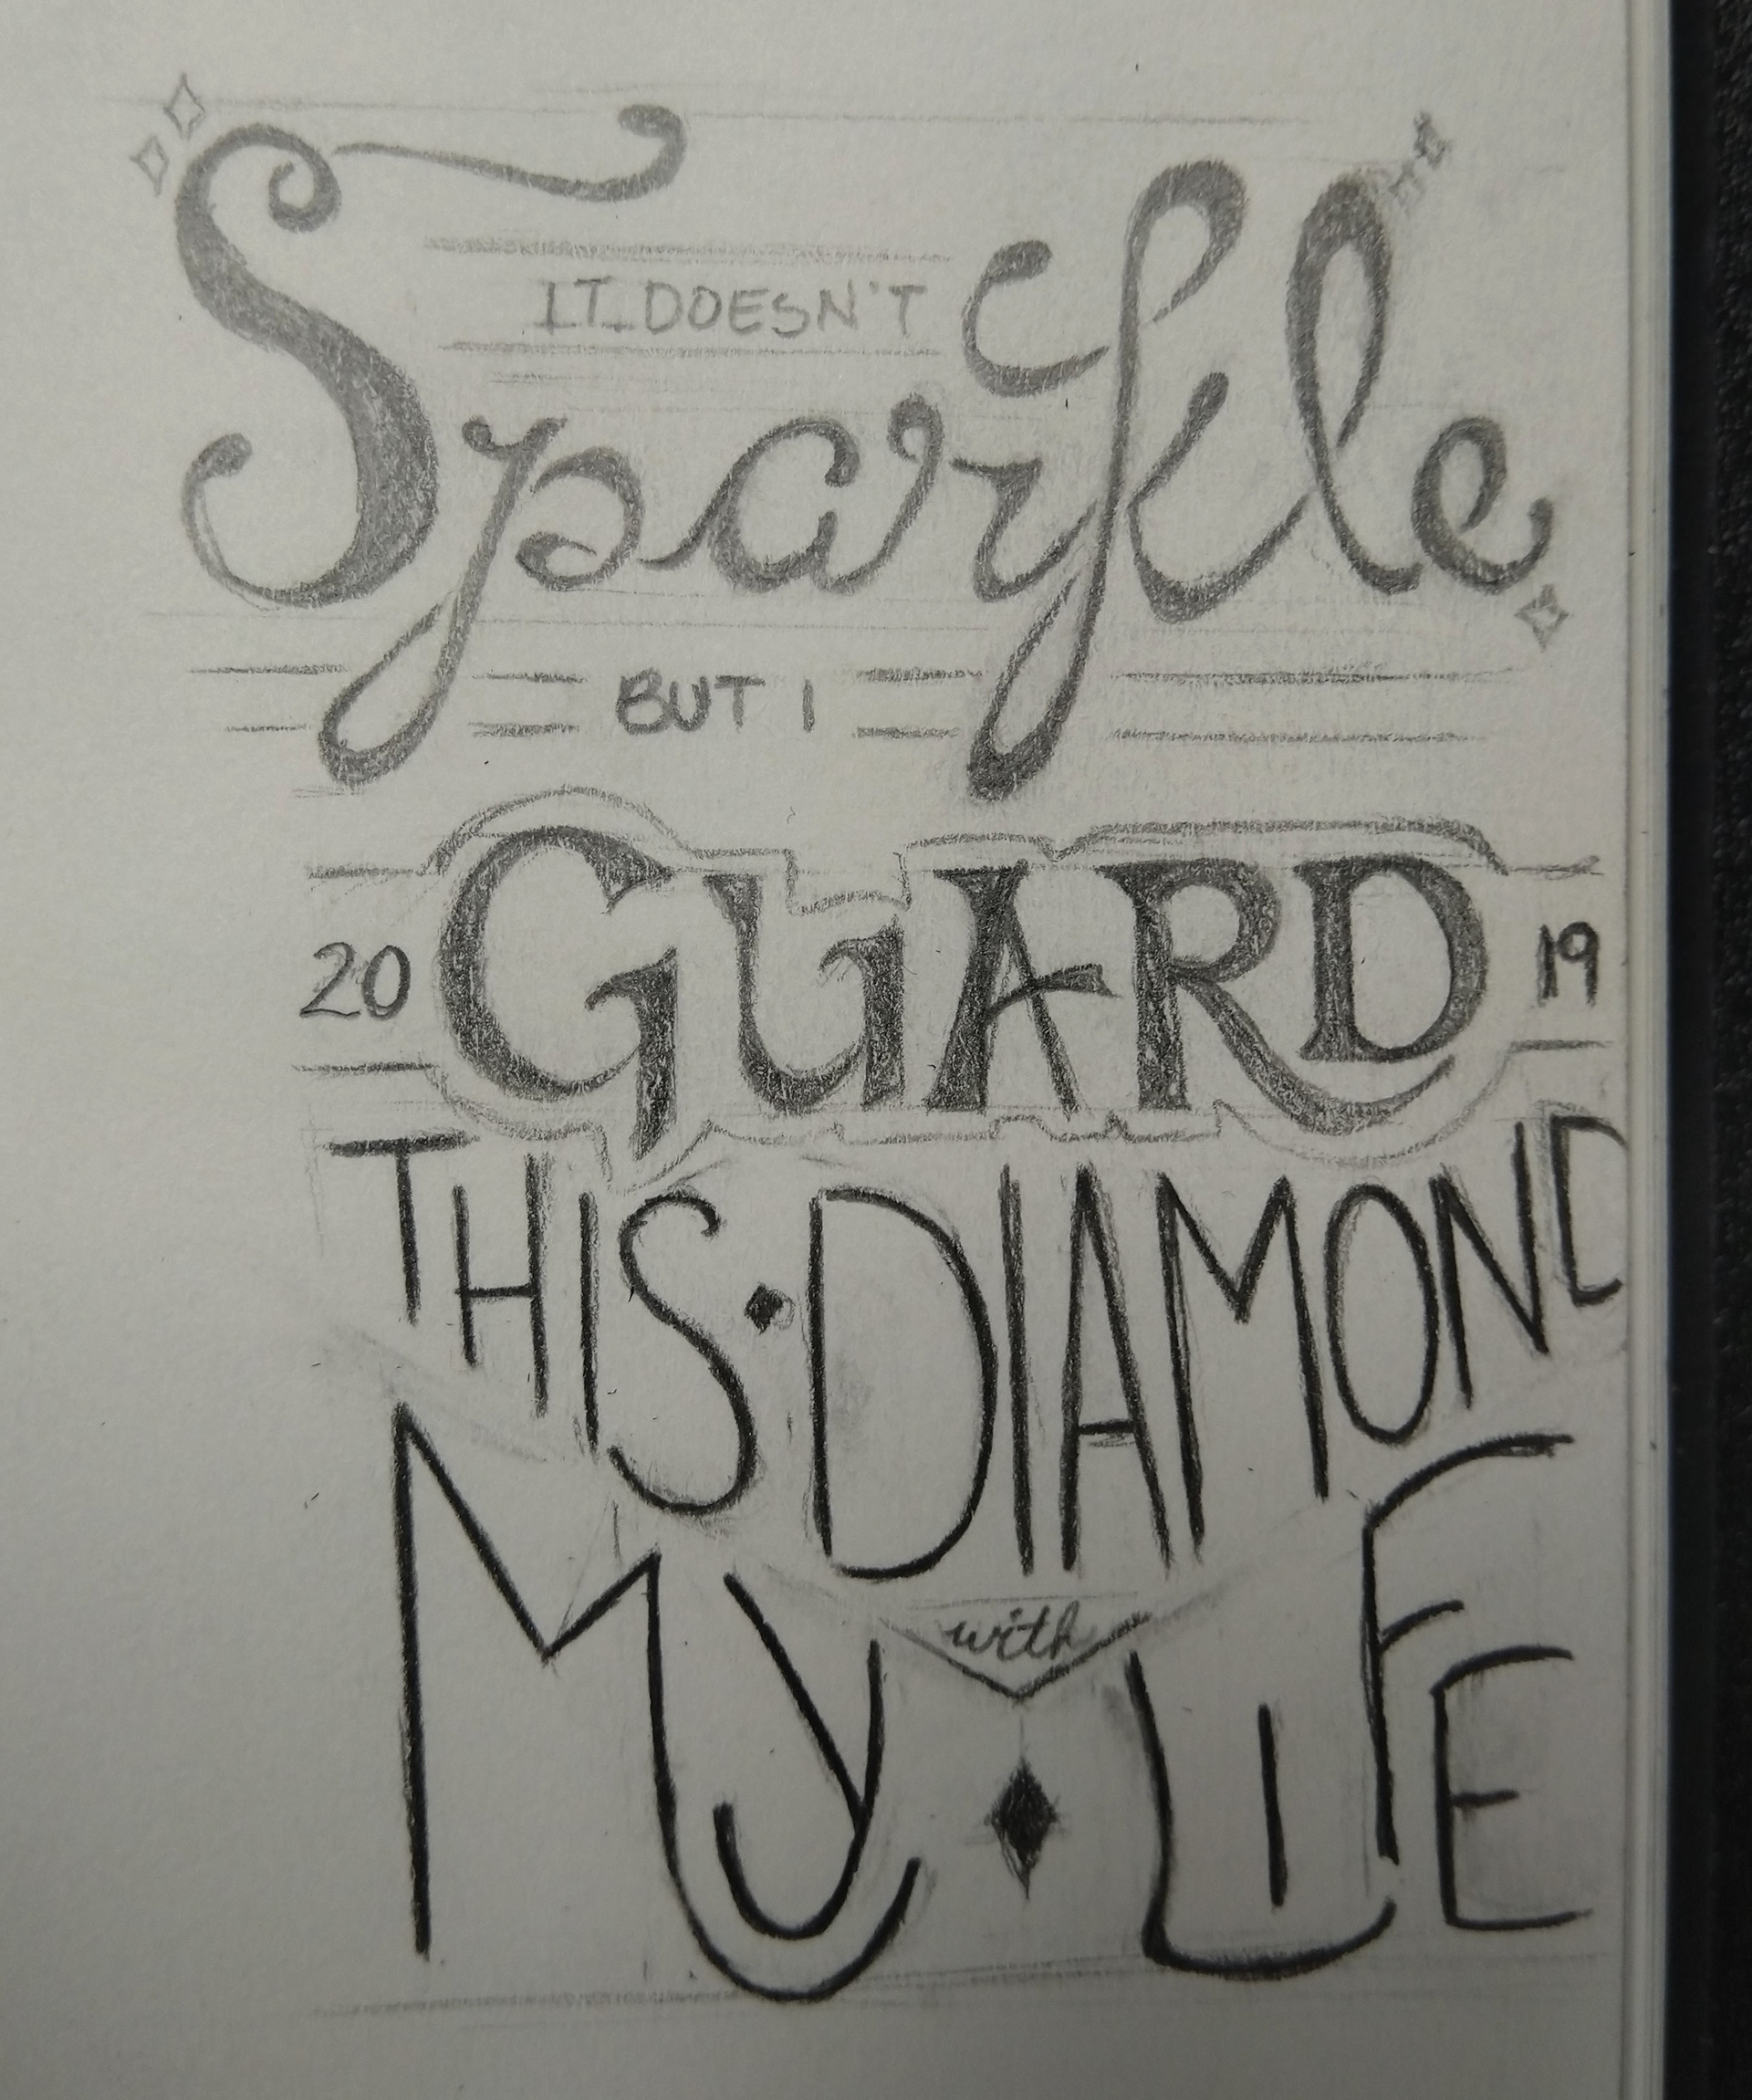 IT DOESN'T
Sparkle
BUT I
20 GUARD 19
THIS DIAMOND
with
MY LIFE